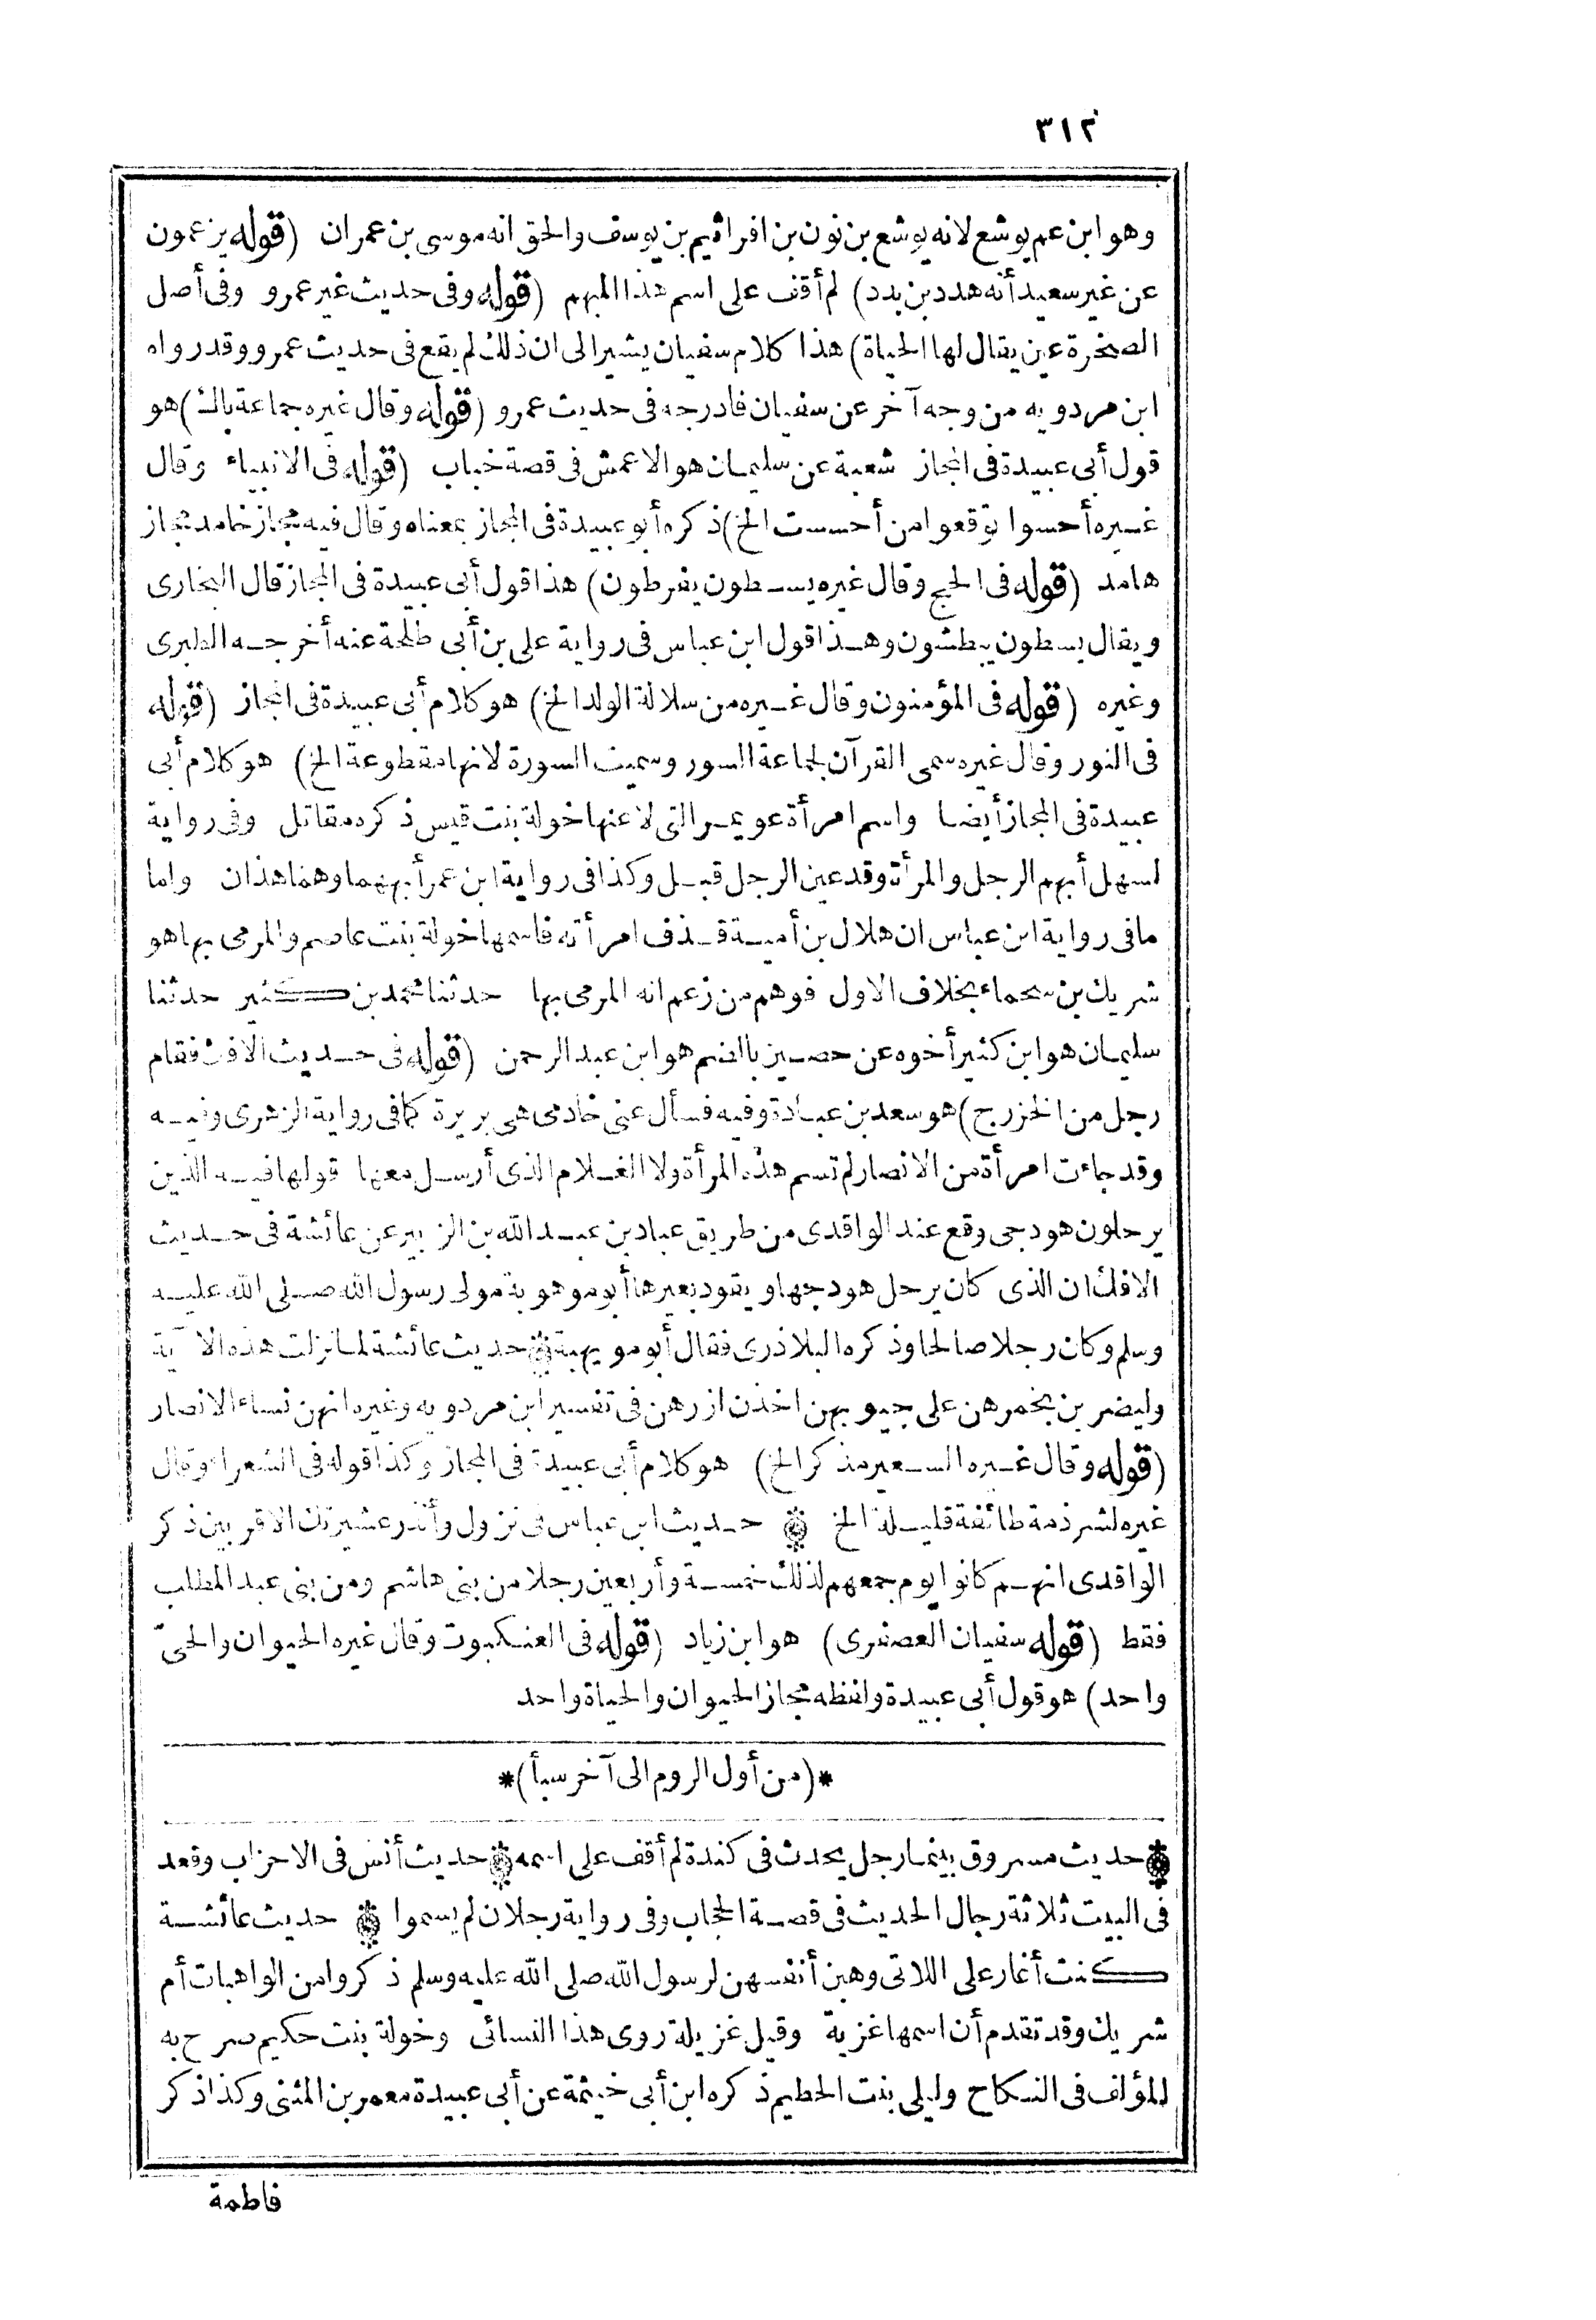 ٣١٢
وهو ابن عم يوشع لانه يوشع بن نون بن افراثيم بن يوسف والحق انه موسى بن عمران (قوله يزعمون
عن غير سعيد أنه هدد بن بدد) لم أقف على اسم هذا المبهم (قوله وفى حديث غير عمرو وفى أصل
الصخرة عين يقال لها الحياة) هذا كلام سفيان يشير الى ان ذلك لم يقع فى حديث عمرو وقد رواه
ابن مردويه من وجه آخر عن سفيان فادرجه فى حديث عمرو (قوله وقال غيره جماعة باك) هو
قول أبى عبيدة فى المجاز شعبة عن سليمان هو الاعمش فى قصة خباب (قوله فى الانبياء وقال
غيره أحسوا توقعوا من أحسست الخ) ذكره أبو عبيدة فى المجاز بمعناه وقال فيه مجاز خامد مجاز
هامد (قوله فى الحج وقال غيره يسطون يفرطون) هذا قول أبى عبيدة فى المجاز قال البخارى
ويقال يسطون يبطشون وهذا قول ابن عباس فى رواية على بن أبى طلحة عنه أخرجه الطبرى
وغيره (قوله فى المؤمنون وقال غيره من سلالة الولد الخ) هو كلام أبى عبيدة فى المجاز (قوله
فى النور وقال غيره سمى القرآن لجماعة السور وسميت السورة لانها مقطوعة الخ) هو كلام أبى
عبيدة فى المجاز أيضا واسم امرأة عويمر التى لاعنها خولة بنت قيس ذكره مقاتل وفى رواية
لسهل أبهم الرجل والمرأة وقد عين الرجل قبل وكذا فى رواية ابن عمر أبهمهما وهما هذان واما
ما فى رواية ابن عباس ان هلال بن أمية قذف امرأته فاسمها خولة بنت عاصم والمرمى بها هو
شريك بن سحماء بخلاف الاول فوهم من زعم انه المرمى بها حدثنا محمد بن كثير حدثنا
سليمان هو ابن كثير أخوه عن حصين بالضم هو ابن عبد الرحمن (قوله فى حديث الافك فقام
رجل من الخزرج) هو سعد بن عبادة وفيه فسأل عنى خادمى هى بريرة كما فى رواية الزهرى وفيه
وقد جاءت امرأة من الانصار لم تسم هذه المرأة ولا الغلام الذى أرسل معها قولها فيه الذين
يرحلون هودجى وقع عند الواقدى من طريق عباد بن عبد الله بن الزبير عن عائشة فى حديث
الافك ان الذى كان يرحل هودجها ويقود بعيرها أبو موهوبة مولى رسول الله صلى الله عليه
وسلم وكان رجلا صالحا وذكره البلاذرى فقال أبو مويهبة حديث عائشة لما نزلت هذه الآية
وليضربن بخمرهن على جيوبهن اخذن ازرهن فى تفسير ابن مردويه وغيره انهن نساء الانصار
(قوله وقال غيره السعير مذكر الخ) هو كلام أبى عبيدة فى المجاز وكذا قوله فى الشعراء وقال
غيره لشرذمة طائفة قليلة الخ حديث ابن عباس فى نزول وأنذر عشيرتك الاقربين ذكر
الواقدى انهم كانوا يوم جمعهم لذلك خمسة وأربعين رجلا من بنى هاشم ومن بنى عبد المطلب
فقط (قوله سفيان العصفرى) هو ابن زياد (قوله فى العنكبوت وقال غيره الحيوان والحىّ
واحد) هو قول أبى عبيدة ولفظه مجاز الحيوان والحياة واحد
*(من أول الروم الى آخر سبأ)*
حديث مسروق بينما رجل يحدث فى كندة لم أقف على اسمه حديث أنس فى الاحزاب وقعد
فى البيت ثلاثة رجال الحديث فى قصة الحجاب وفى رواية رجلان لم يسموا حديث عائشة
كنت أغار على اللاتى وهبن أنفسهن لرسول الله صلى الله عليه وسلم ذكروا من الواهبات أم
شريك وقد تقدم أن اسمها غزية وقيل غزيلة روى هذا النسائى وخولة بنت حكيم صرح به
المؤلف فى النكاح وليلى بنت الحطيم ذكره ابن أبى خيثمة عن أبى عبيدة معمر بن المثنى وكذا ذكر
فاطمة